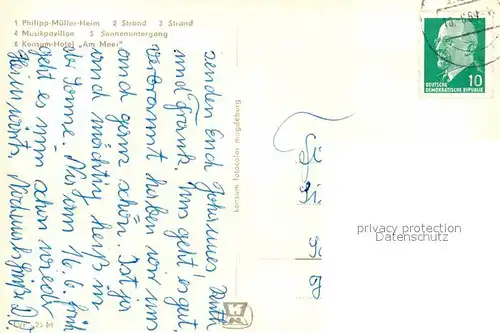 1 Philipp-Müller-Heim 2 Strand 3 Strand
4 Musikpavillon 5 Sonnenuntergang
6 Konsum-Hotel „Am Meer“
senden Euch Johannes, Ruth
und Frank. Uns geht es gut,
verbrannt haben wir uns
auch ganz schön. Ist ja
auch mächtig heiß in
der Sonne. Na am 16. 6. früh
geht es nun schon wieder
heimwärts. Nochmals Grüße D. O.
konsum fotocolor magdeburg
DEUTSCHE
DEMOKRATISCHE REPUBLIK
10
privacy protection
Datenschutz